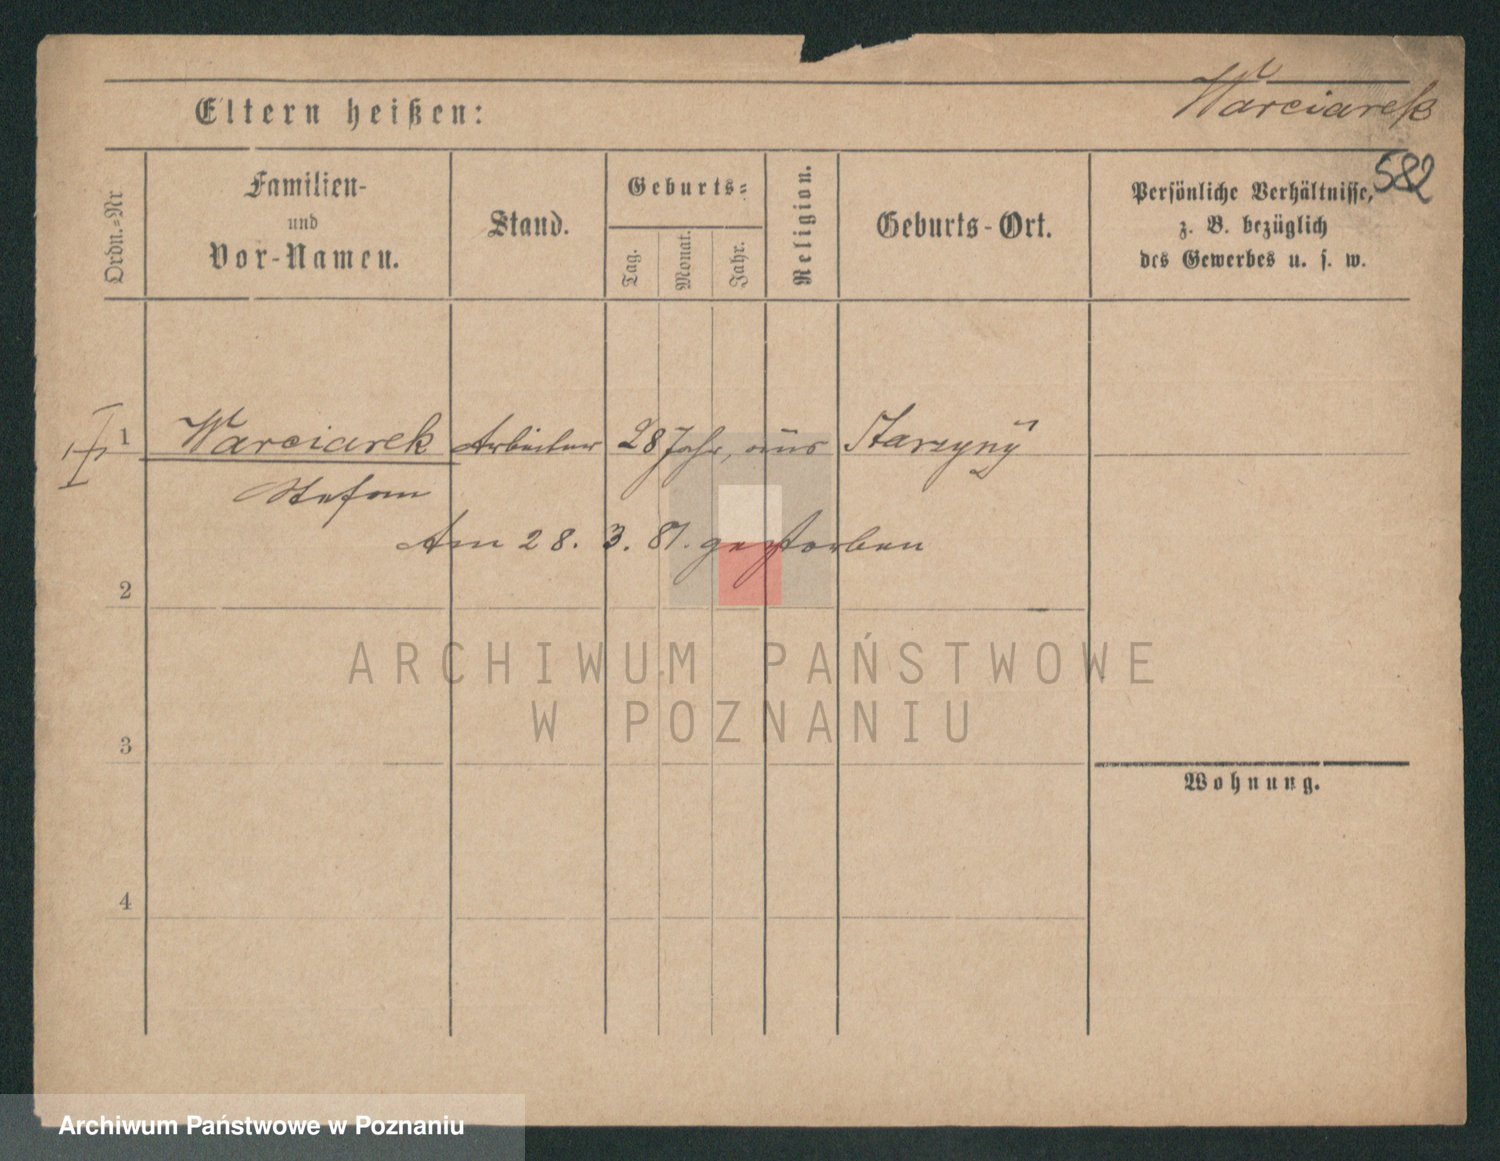 Warciarek
Eltern heißen:
582
Ordn.=Nr
Familien-
und
Vor-Namen.
Stand.
Geburts=
Tag.
Monat.
Jahr.
Religion.
Geburts-Ort.
Persönliche Verhältnisse,
z. B. bezüglich
des Gewerbes u. s. w.
1 Warciarek Arbeiter 28 Jahr, aus Starzyny
Stefan
Am 28. 3. 81. gestorben
2
ARCHIWUM PAŃSTWOWE
W POZNANIU
3
Wohnung.
4
Archiwum Państwowe w Poznaniu